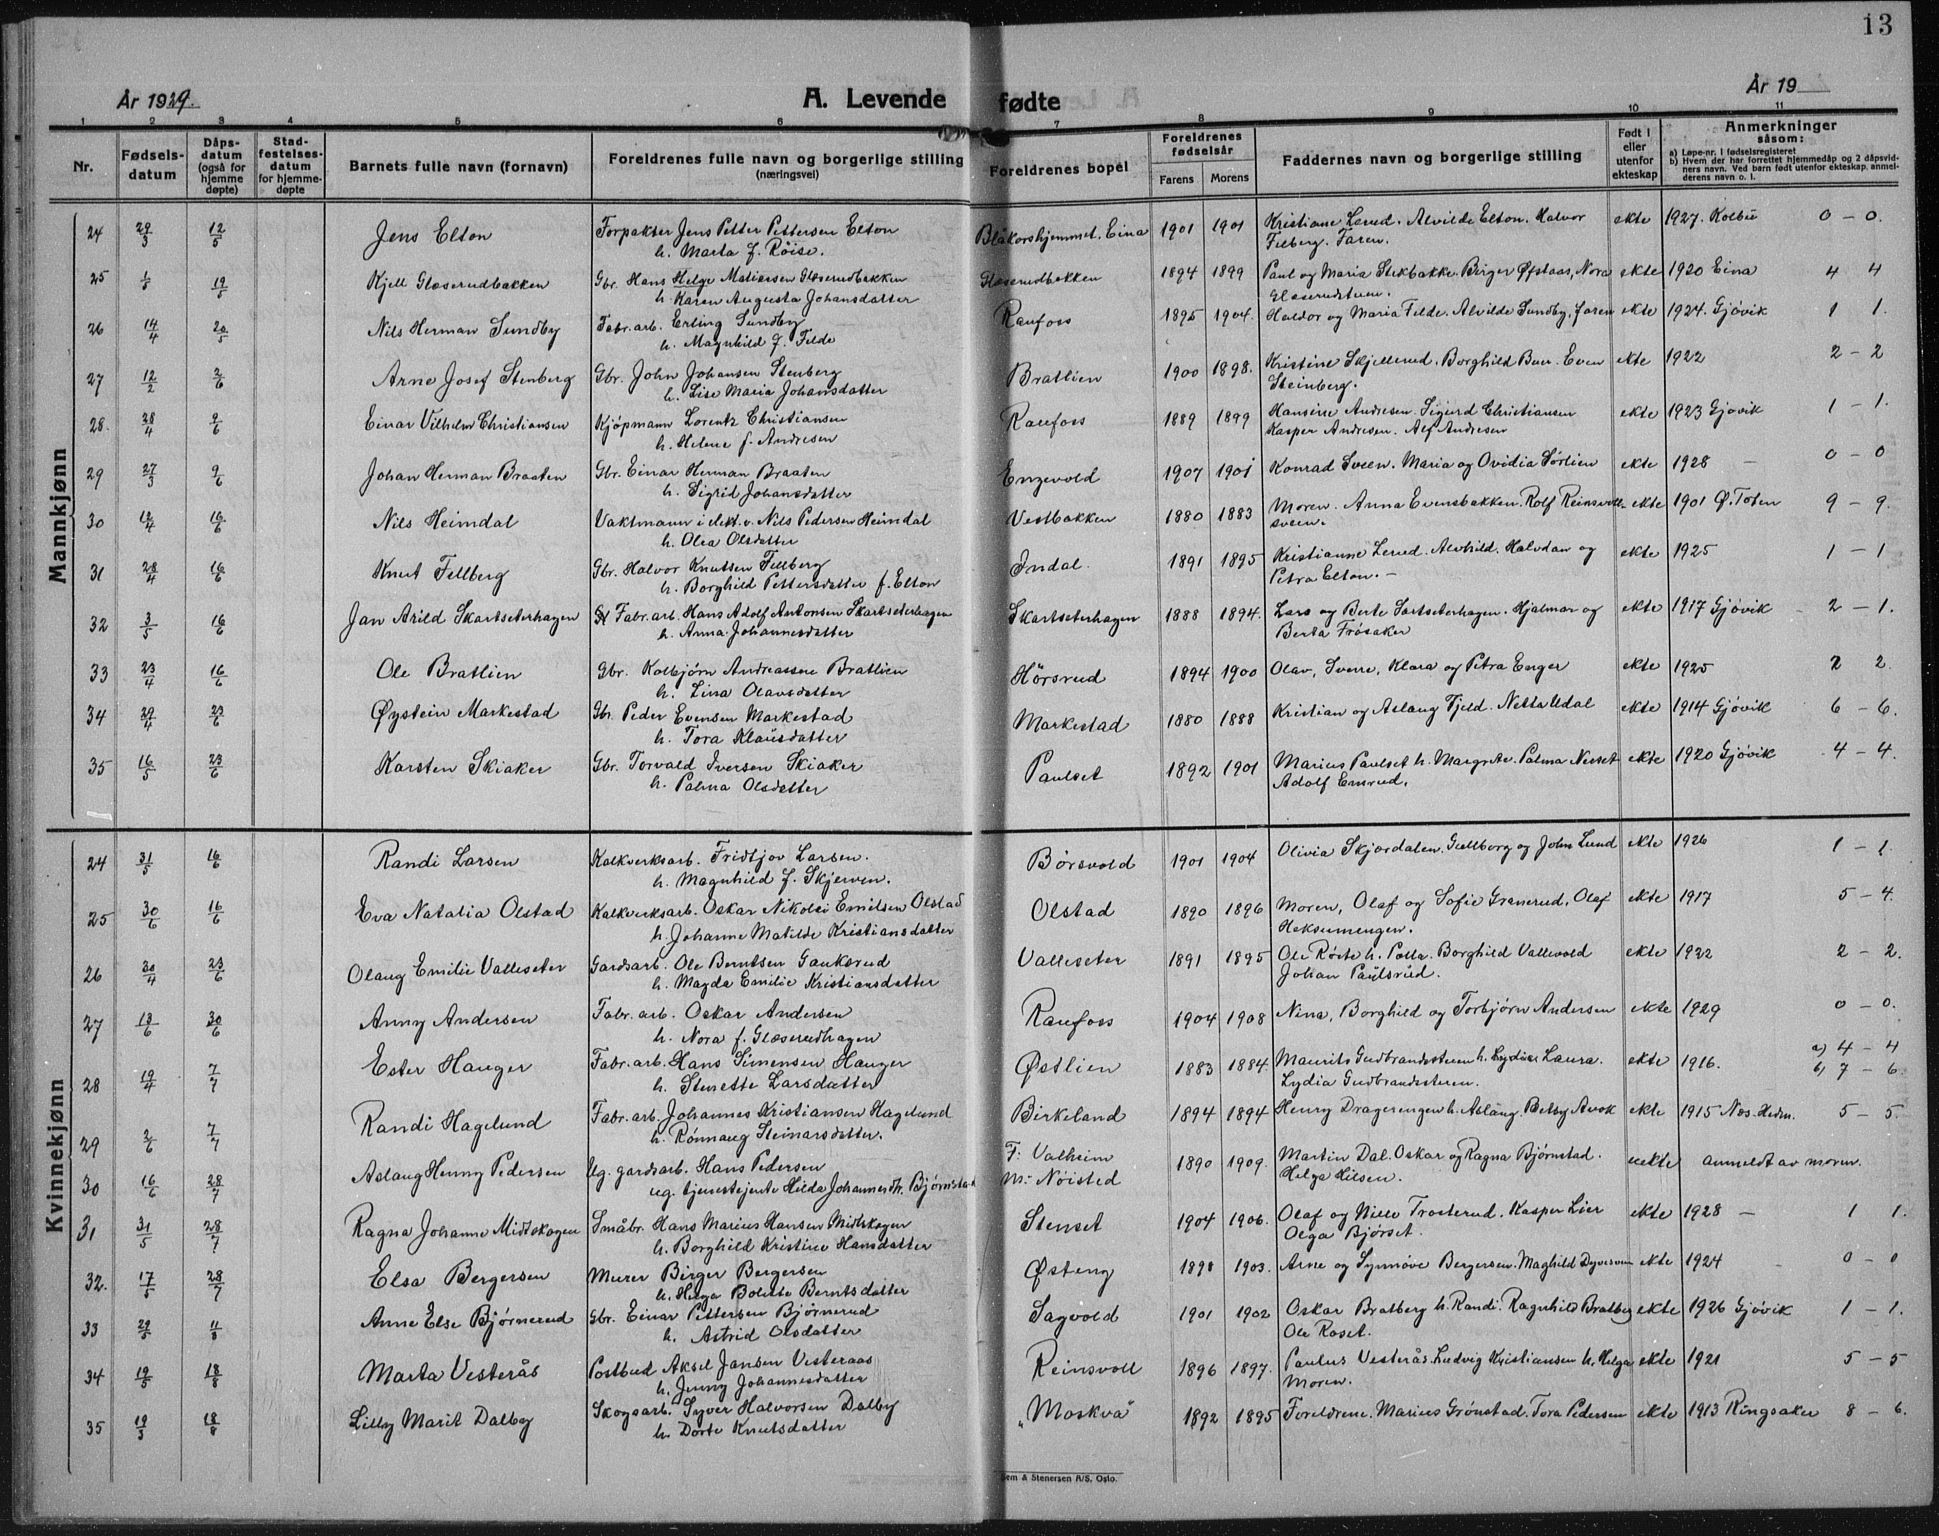 13
År 1929.
A. Levende fødte
År 19
1 2 3 4 5 6 7 8 9 10 11
Nr.
Fødsels-
datum
Dåps-
datum
(også for
hjemme
døpte)
Stad-
festelses-
datum
for hjemme-
døpte
Barnets fulle navn (fornavn)
Foreldrenes fulle navn og borgerlige stilling
(næringsvei)
Foreldrenes bopel
Foreldrenes
fødselsår
Farens Morens
Faddernes navn og borgerlige stilling
Født i
eller
utenfor
ekteskap
Anmerkninger
såsom:
a) Løpe-nr. i fødselsregisteret
b) Hvem der har forrettet hjemmedåp og 2 dåpsvid-
ners navn. Ved barn født utenfor ekteskap anmel-
derens navn o. l.
Mannkjønn
24 29/3 12/5 Jens Elton Forpakter Jens Petter Pettersen Elton Blåkorshjemmet, Eina 1901 1901 Kristiane Lerud. Alvilde Elton. Halvor ekte 1927. Kolbu 0 – 0.
h. Marta f. Röise. Filberg. Faren.
25 1/5 19/5 Kjell Glæserudbakken Gbr. Hans Helge Matiersen Glæserudbakken Glæserudbakken 1894 1899 Paul og Maria Stekbakke. Birger Øfstaas, Nora ekte 1920 Eina 4 4
h. Karen Augusta Johansdatter Glæserudstuen.
26 14/4 20/5 Nils Herman Sundby Fabr. arb. Erling Sundby Raufoss 1895 1904. Haldor og Maria Filde. Alvilde Sundby, faren ekte 1924. Gjøvik 1 1.
h. Magnhild f. Filde
27 12/2 2/6 Arne Josef Stenberg Gbr. John Johansen Stenberg Bratlien 1900 1898. Kristine Skjellerud. Borghild Bun. Even ekte 1922 2 – 2
h. Lise Maria Johansdatter Steinberg.
28. 28/4 9/6 Einar Vilhelm Christiansen Kjøpmann Lorentz Christiansen Raufoss 1889 1899 Hansine Andresen. Sigurd Christiansen ekte 1923 Gjøvik 1 – 1.
h. Helene f. Andresen Kasper Andresen. Alf Andresen
29 27/3 9/6 Johan Herman Braaten Gbr. Einar Herman Braaten Engevold 1907 1901 Konrad Sveen. Maria og Ovidia Sørlien ekte 1928 – 0 – 0
h. Sigrid Johansdatter
30 12/4 16/6 Nils Heimdal Vaktmann i elekt. v. Nils Pedersen Heimdal Vestbakken 1880 1883 Moren. Anna Evensbakken. Rolf Reinsvoll- ekte 1901 Ø. Toten 9 – 9.
h. Olea Olsdatter sveen.
31 28/4 16/6 Knut Fellberg Gbr. Halvor Knutsen Fellberg Indal. 1891 1895 Kristianne Lerud. Alvhild. Halvdan og ekte 1925 1 – 1
h. Borghild Pettersdatter f. Elton Petra Elton. –
32 3/5 16/6 Jan Arild Skartseterhagen Fabr. arb. Hans Adolf Antonsen Skartseterhagen Skartseterhagen 1888 1894. Lars og Berte Sartseterhagen. Hjalmar og ekte 1917 Gjøvik 2 – 1.
h. Anna Johannesdatter Berta Frösaker
33 23/4 16/6 Ole Bratlien Gbr. Kolbjørn Andreassen Bratlien Hörsrud 1894 1900 Olav, Sverre, Klara og Petra Enger ekte 1925 2 2.
h. Lina Olavsdatter
34 29/4 23/6 Øystein Markestad Gbr. Peder Evensen Markestad Markestad 1880 1888 Kristian og Aslaug Fjeld. Netta Udal ekte 1914 Gjøvik 6 – 6.
h. Tora Klausdatter
35 16/5 23/6 Karsten Skiaker Gbr. Torvald Iversen Skiaker Paulset 1892 1901 Marius Paulset h. Margrete. Palma Nesset ekte 1920 Gjövik 4 – 4.
h. Palma Olsdatter Adolf Emrud.
Kvinnekjønn
24 31/5 16/6 Randi Larsen Kalkverksarb. Fridtjov Larsen. Börsvold 1901 1904 Olivia Skjardalen. Gullborg og John Lund ekte 1926 1 – 1.
h. Magnhild f. Skjerven.
25 30/6 16/6 Eva Natalia Olstad Kalkverksarb. Oskar Nikolei Emilsen Olstad Olstad 1890 1896 Moren, Olaf og Sofie Granerud, Olaf ekte 1917 5 – 4.
h. Johanne Matilde Kristiansdatter Heksumengen.
26 30/4 23/6 Olaug Emilie Valleseter Gardsarb. Ole Berntsen Gaukerud Valleseter 1891 1895 Ole Röste h. Polla. Borghild Vallevold ekte 1922 2 – 2.
h. Magda Emilie Kristiansdatter Johan Paulsrud.
27 13/6 30/6 Anny Andersen Fabr. arb. Oskar Andersen Raufoss 1904 1908 Nina, Borghild og Torbjörn Andersen ekte 1929 0 – 0.
h. Nora f. Glæserudhagen
28 19/4 7/7 Ester Hauger Fabr. arb. Hans Simensen Hauger Østlien 1883 1884. Maurits Gudbrandsstuen h. Lydia. Laura. ekte 1916. a) 4 – 4
h. Stenette Larsdatter Lydia Gudbrandsstuen. b) 7 – 6.
29 2/6 7/7 Randi Hagelund Fabr. arb. Johannes Kristiansen Hagelund Birkeland 1894 1894 Henry Dragerengen h. Aslaug. Betsy Avok ekte 1915 Næs. Hedm. 5 – 5.
h. Rönnaug Steinarsdatter.
30 16/6 28/7 Aslaug Henny Pedersen Ug. gardsarb. Hans Pedersen F: Valheim 1890 1909. Martin Dal. Oskar og Ragna Bjørnstad. uekte anmeldt av moren.
ug. tjenestejente Hilda Johannesdtr. Bjørnstad M: Nöisted Helga Nilsen.
31 31/5 28/7 Ragna Johanne Midtskogen Småbr. Hans Marius Hansen Midtskogen Stenset 1904 1906. Olaf og Nille Trosterud. Kasper Lier ekte 1928 – 1 1.
h. Borghild Kristine Hansdatter Olga Bjørset.
32. 17/5 28/7 Elsa Bergersen Murer Birger Bergersen Østeng 1898 1903. Arne og Synnöve Bergersen. Maghild Dyvesveen ekte 1924 0 – 0
h. Helga Bolette Berntsdatter
33 29/5 11/8 Anne Else Bjørnerud Gbr. Einar Pettersen Bjørnerud Sagvold 1901 1902 Oskar Bratberg h. Randi. Ragnhild Bratberg ekte 1926 Gjøvik 1 – 1.
h. Astrid Olsdatter Ole Roset.
34 19/5 18/8 Marta Vesterås Postbud Aksel Jansen Vesteraas Reinsvoll 1896 1897. Paulus Vesterås. Ludvig Kristiansen h. Helga ekte 1921 5 – 5
h. Jenny Johannesdatter Moren.
35 19/5 18/8 Lilly Marit Dalby Skogsarb. Syver Halvorsen Dalby „Moskva" 1892 1895 Foreldrene. Marius Grönstad. Tora Pedersen ekte 1913 Ringsaker 8 – 6.
h. Dorte Knutsdatter
Sem & Stenersen A/S, Oslo.